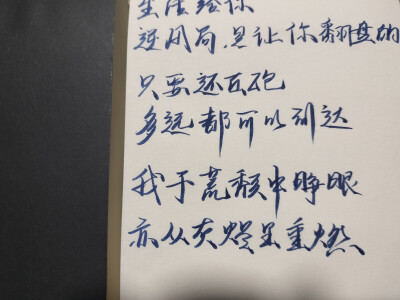 生活给你
逆风局，是让你翻盘的
只要还在跑
多远都可以到达
我于荒颓中睁眼
亦从灰烬里重燃